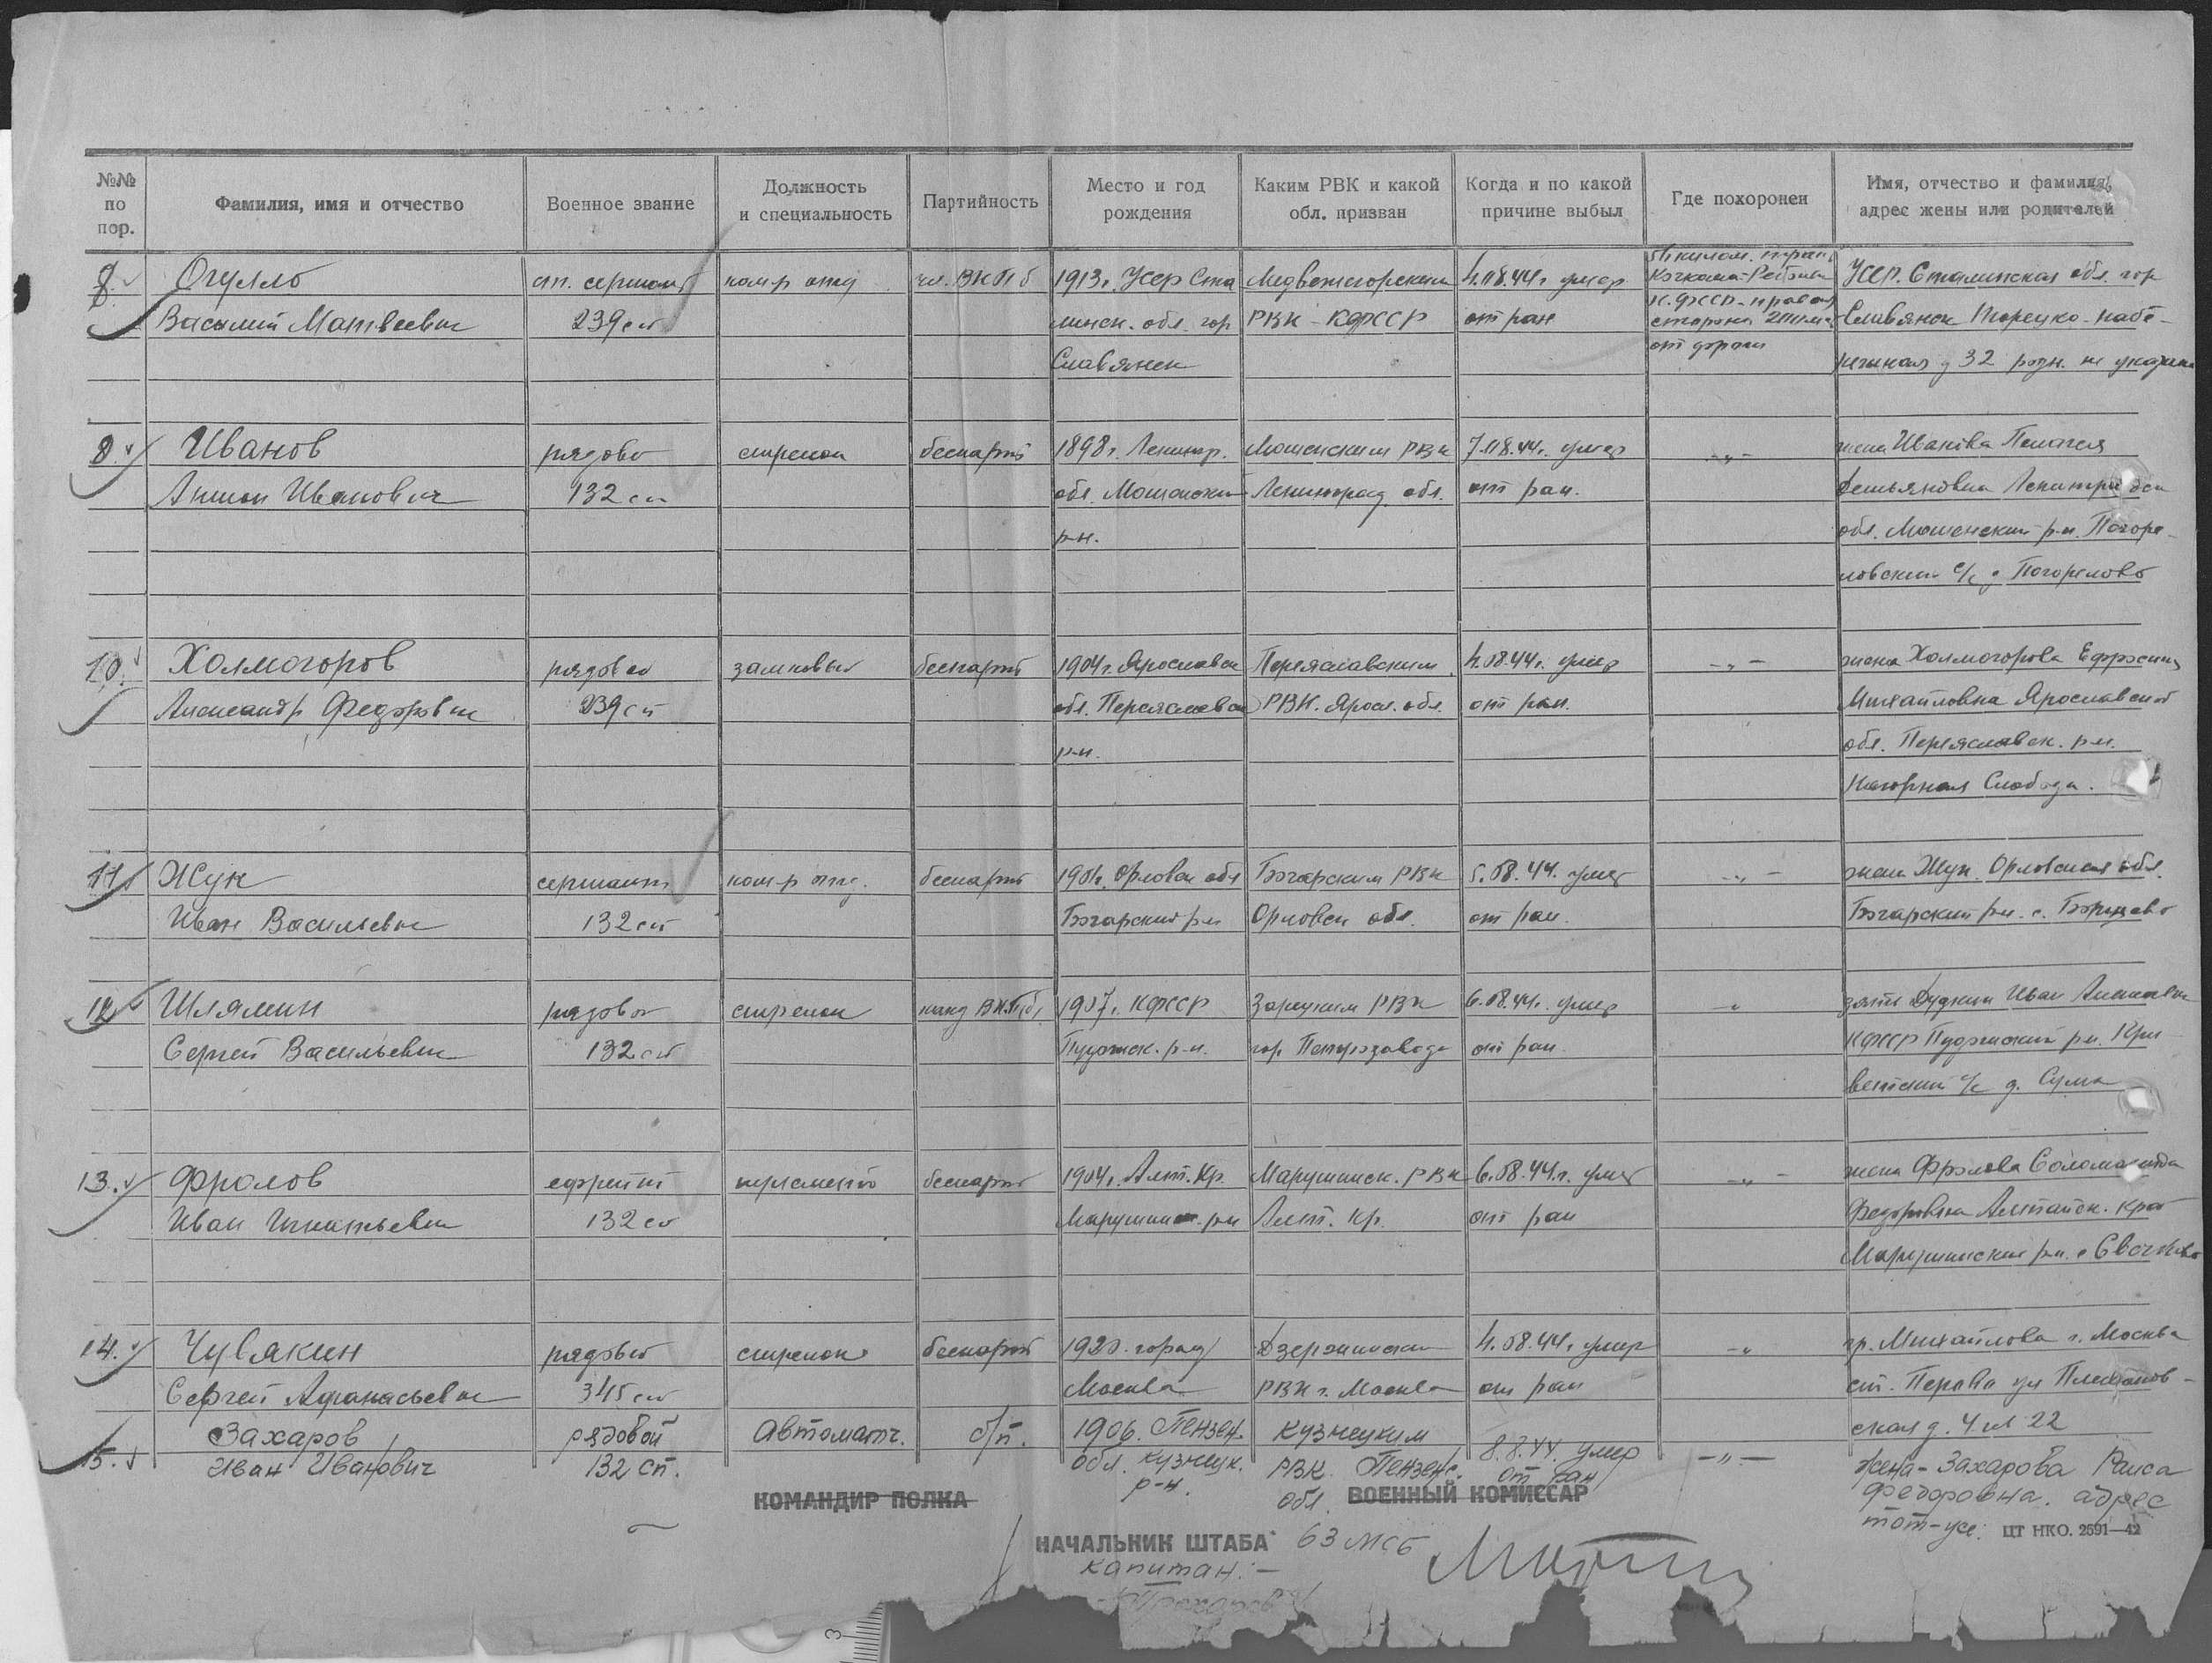 №№ по пор.
Фамилия, имя и отчество
Военное звание
Должность и специальность
Партийность
Место и год рождения
Каким РВК и какой обл. призван
Когда и по какой причине выбыл
Где похоронен
Имя, отчество и фамилия, адрес жены или родителей
Огулло
Василий Матвеевич
ст. сержант
239 сп
ком-р отд
чл. ВКП б
1913г. УССР Ста
линск. обл. гор
Славянск
Медвежегорским
РВК - КФССР
4.08.44г умер
от ран
сторона
от дороги
УССР. Сталинская обл. гор
Славянск Торецко-набе-
режная д 32 родн. не указаны
8.
Иванов
Антон Иванович
рядовой
132 сп
стрелок
беспарт
1898г. Ленингр.
обл. Мошенски
р-н.
Мошенским РВК
Ленинград. обл.
7.08.44г. умер
от ран.
-„-
жена Иванова Пелагея
Демьяновна Ленинградск
обл. Мошенский р-н. Погоре-
ловский с/с д Погорелово
10.
Холмогоров
Александр Федорович
рядовой
239 сп
замковый
беспарт
1904г. Ярославск
обл. Переяславск
р-н.
Переяславским
РВК. Яросл. обл.
4.08.44г. умер
от ран.
-„-
жена Холмогорова
Михайловна Ярославской
обл. Переяславск. р-н.
Нагорная Слобода.
11
Жук
Иван Васильевич
сержант
132 сп
ком-р отд.
беспарт
Орловск обл
р-н
РВК
Орловск обл.
5.08.44. умер
от ран.
-„-
жена Жук. Орловская обл.
р-н. с.
12
Шлямин
Сергей Васильевич
рядовой
132 сп
стрелок
канд ВКП(б)
1907г. КФССР
Пудожск. р-н.
РВК
гор. Петрозаводс
6.08.44г. умер
от ран
-„
Иван
КФССР Пудожский р-н. Кри
ветский с/с д. Сума
13.
Фролов
Иван Игнатьевич
ефрейт
132 сп
беспарт
1904г. Алт. Кр.
Марушинск. р-н
Марушинск. РВК
Алт. Кр.
6.08.44г. умер
от ран
-„-
жена Фролова
Федоровна Алтайск. край
Марушинский р-н. с
14.
Чувякин
Сергей Афанасьевич
рядовой
345 сп
стрелок
беспарт
1920. город
Москва
Дзержинским
РВК г. Москва
4.08.44г. умер
от ран
-„
гр. Михайлова г. Москва
ст. Перово ул Плеханов-
ская д. 4 кв 22
15.
Захаров
Иван Иванович
рядовой
132 сп.
Автоматч.
б/п.
1906. Пензен.
обл. Кузнецк.
р-н.
Кузнецким
РВК. Пензенс.
обл.
8.8.44 умер
от ран
-„-
жена - Захарова Раиса
Федоровна. адрес
тот-же.
КОМАНДИР ПОЛКА
ВОЕННЫЙ КОМИССАР
НАЧАЛЬНИК ШТАБА 63 МСБ
капитан:-
ЦТ НКО. 2591—42